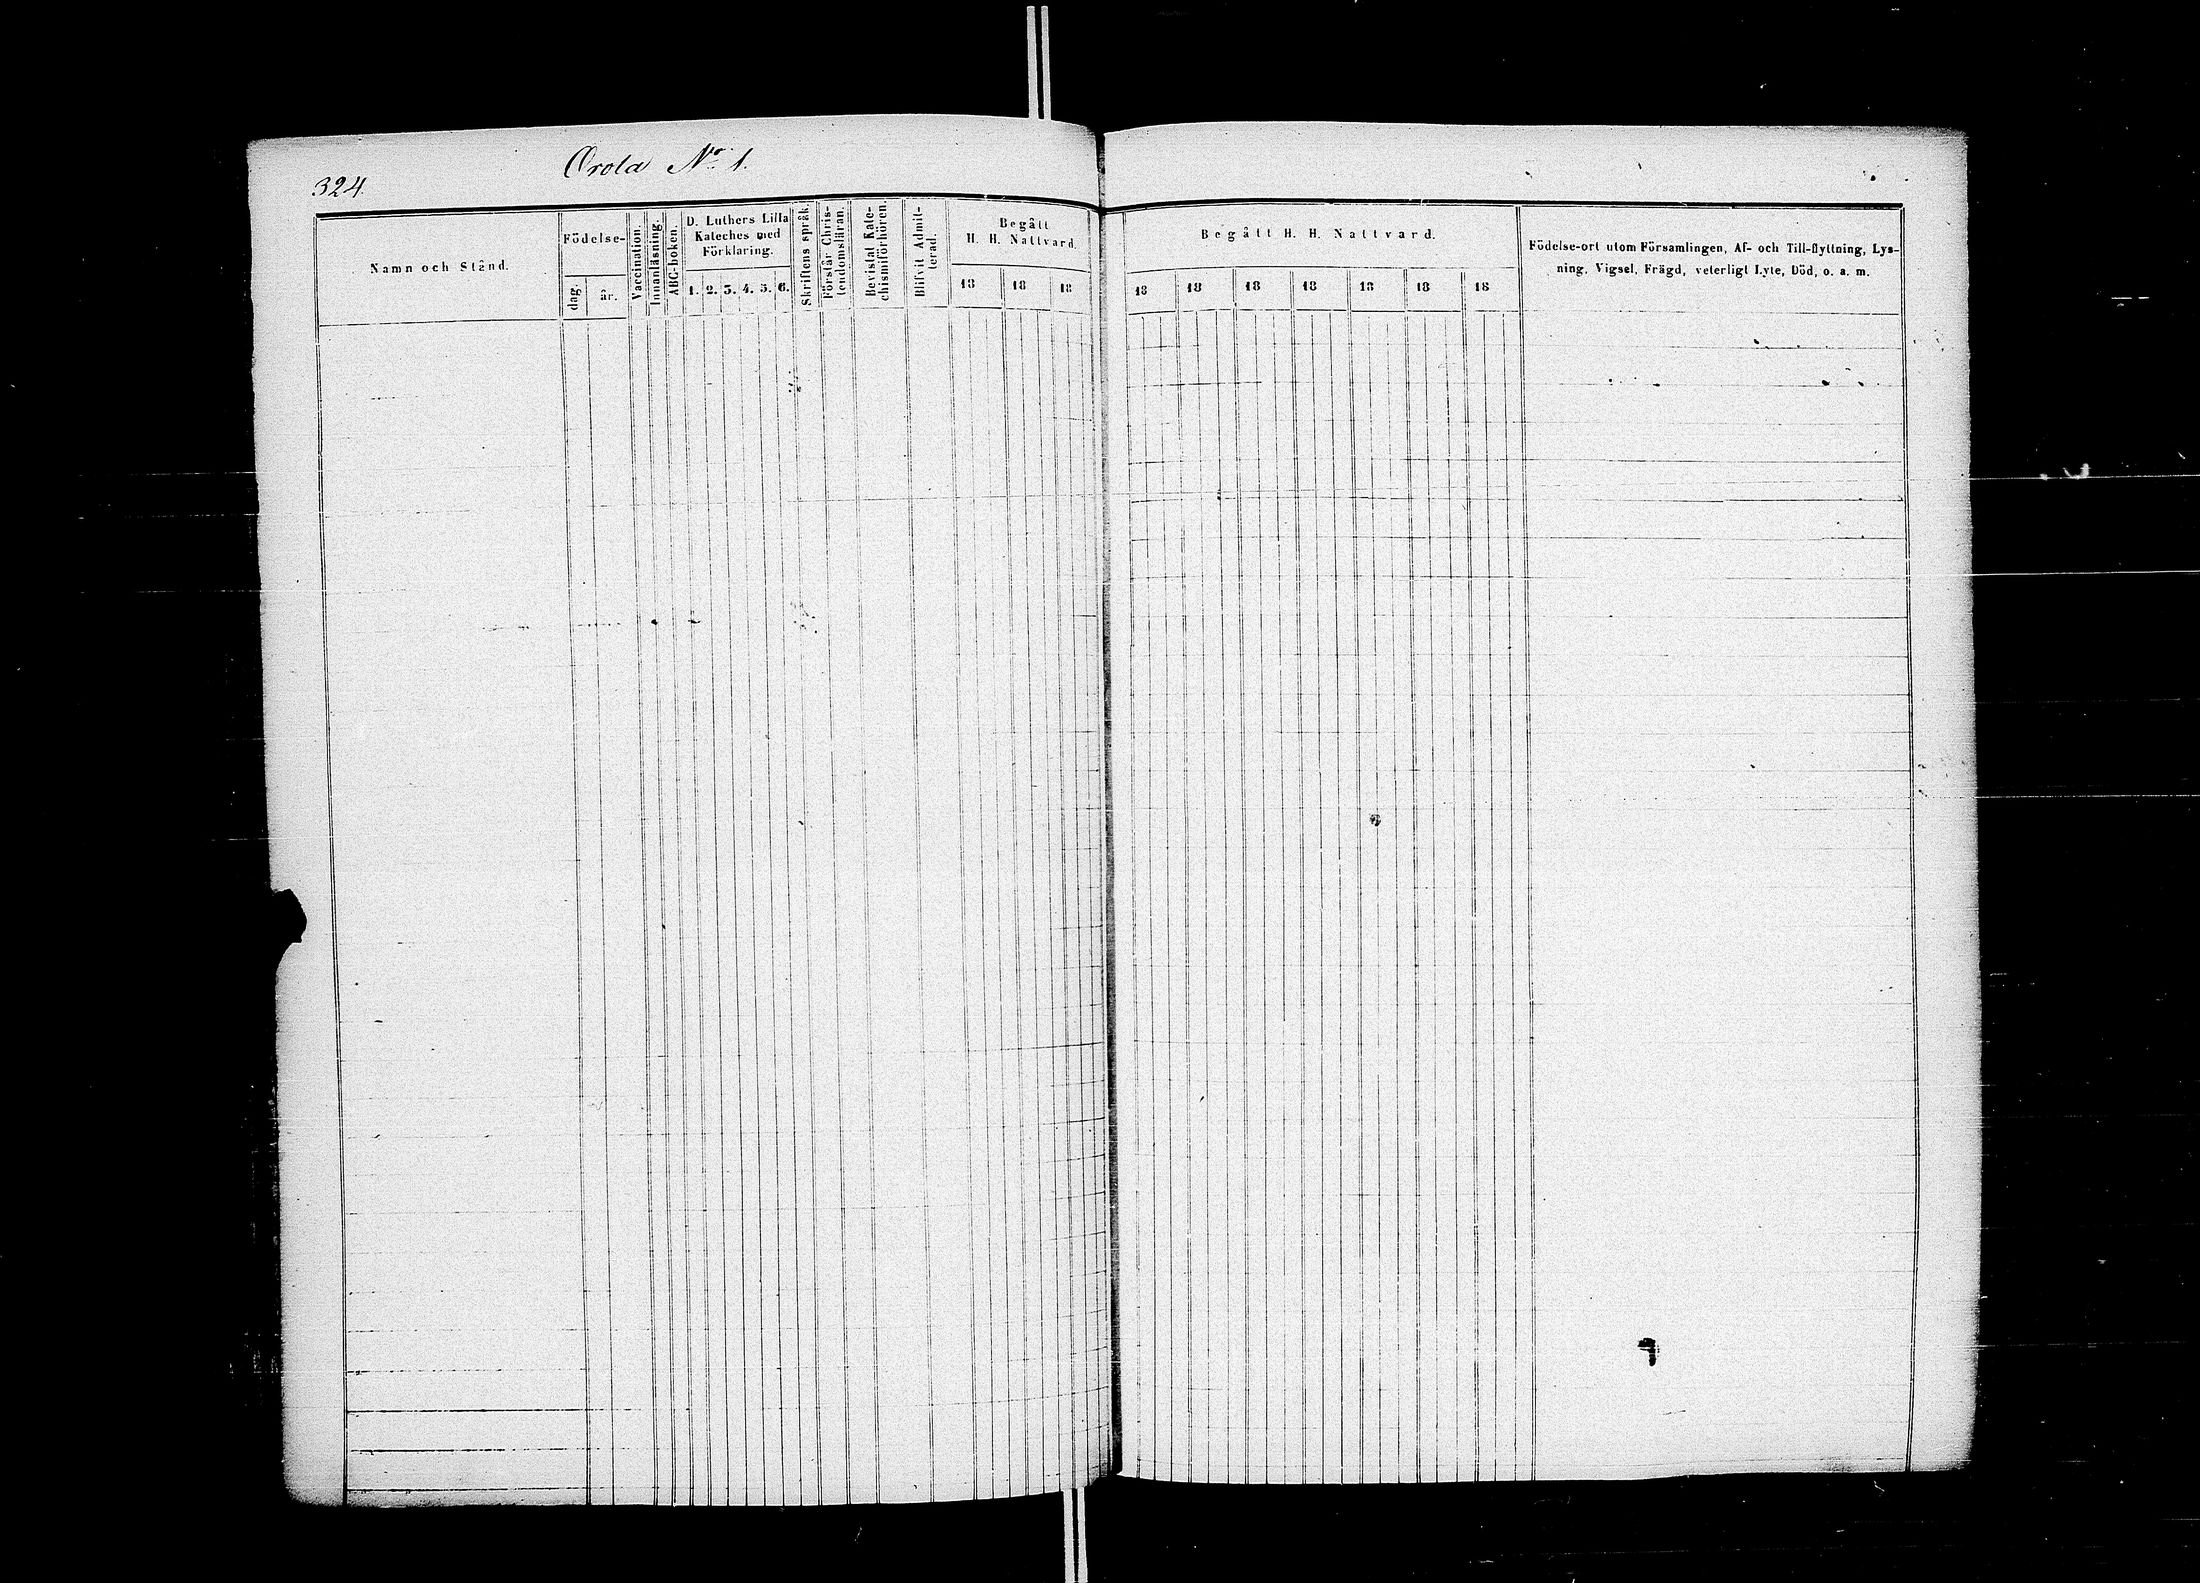 324.
Orola No 1.
Namn och Stånd.
Födelse-
dag.
år.
Vaccination.
Innanläsning.
ABC-boken.
D. Luthers Lilla
Kateches med
Förklaring.
1. 2. 3. 4. 5. 6.
Skriftens språk.
Förstår Chris-
tendomsläran.
Bevistat Kate-
chismiförhören.
Blifvit Admit-
terad.
Begått
H. H. Nattvard.
18 18 18
Begått H. H. Nattvard.
18 18 18 18 18 18 18
Födelse-ort utom Församlingen, Af- och Till-flyttning, Lys-
ning, Vigsel, Frägd, veterligt Lyte, Död, o. a. m.